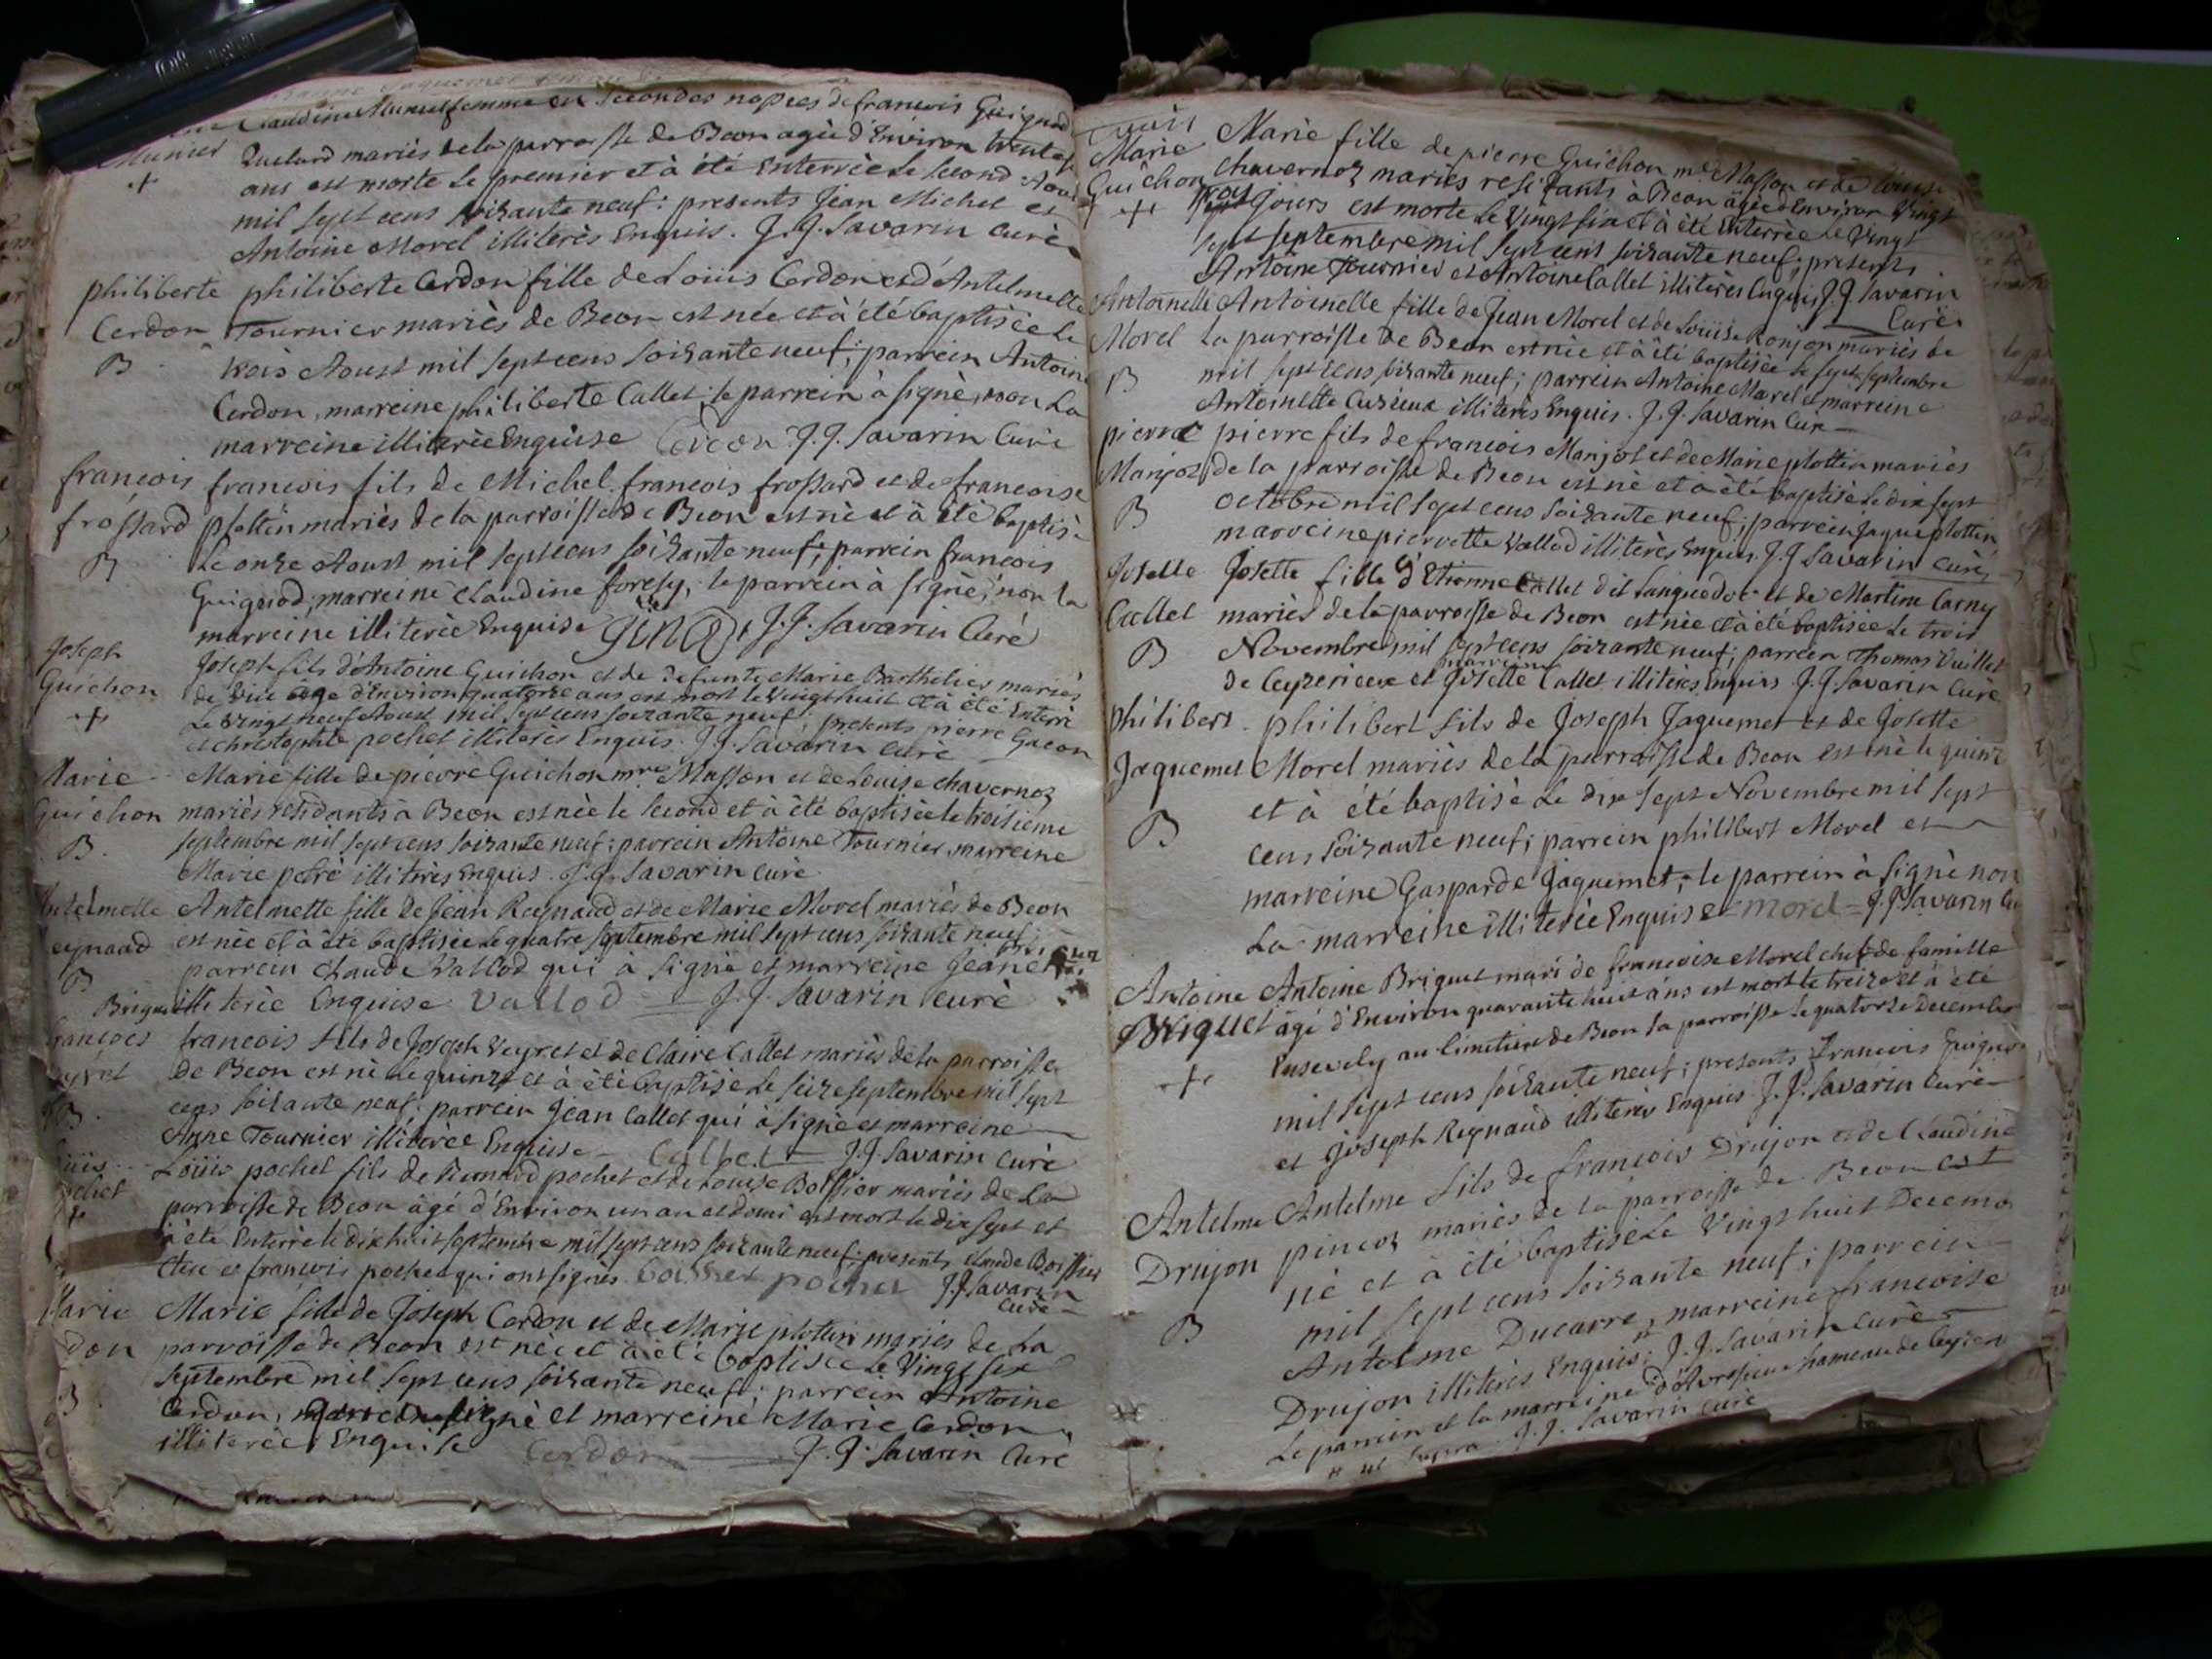 Claudine Munier femme en secondes nopces de francois Guignod
Munier
Quelard mariès de la parroisse de Beon agèe d'Environ trente
+
ans est morte le premier et à été Enterrèe le second Aoust
mil sept cens soixante neuf : presents Jean Michel et
Antoine Morel illiterès Enquis . J.J. Savarin curè
philiberte philiberte Cerdon fille de Loüis Cerdon et d'Antelmette
Cerdon Tournier mariès de Beon est née et à été baptisèe le
B trois Aoust mil sept cens soixante neuf ; parrein Antoine
Cerdon , marreine philiberte Callet ; le parrein à signè, non La
marreine illiterèe Enquise Cerdon J.J. Savarin Curè
francois francois fils de Michel francois frossard et de francoise
frossard plottin mariès de la parroisse de Beon est nè et à été baptisè
B Le onze Aoust mil sept cens soixante neuf ; parrein francois
Guignod, marreine Claudine forely, le parrein à signè, non la
marreine illiterèe Enquise J.J. Savarin Curé
Joseph Joseph fils d'Antoine Guichon et de defunte Marie Barthelier mariès
Guichon de age d'Environ quatorze ans est mort le vingt huit et à été Enterrè
+ Le vingt neuf Aoust mil sept cens soixante neuf presents pierre Gacon
et christophle pochet illiterès Enquis . J.J. Savarin curè
Marie Marie fille de pierre Guichon mre Masson et de Louise chavernoz
Guichon mariès residants à Beon est née le second et à été baptisèe le troisieme
B. septembre mil sept cens soixante neuf ; parrein Antoine Tournier marreine
Marie petre illiterès Enquis . J.J. Savarin curè
Antelmette Antelmette fille de Jean Reynaud et de Marie Morel mariès de Beon
Reynaud est nèe et à été baptisèe le quatre septembre mil sept cens soixante neuf ;
B parrein Claude Vallod qui à signè et marreine Jeane
Briquet illiterèe Enquise Vallod J.J. Savarin curè
francois francois fils de Joseph Veyret et de Claire Callet mariès de la parroisse
Veyret de Beon est nè le quinze et à été baptisè le seize septembre mil sept
B. cens soixante neuf ; parrein Jean Callet qui à signè et marreine
Anne Tournier illiterèe Enquise Callet J.J. Savarin Curè
Loüis Loüis pochet fils de Bernard pochet et de Louise Bossier mariès de La
pochet parroisse de Beon âgé d'Environ un an et demi est mort le dix sept et
+ à été Enterrè le dix huit septembre mil sept cens soixante neuf ; presents Claude Boissier
et francois pochet qui ont signès pochet J.J. Savarin
Curè
Marie Marie fille de Joseph Cerdon et de Marie plottin mariès de La
Cerdon parroisse de Beon est nèe et à été baptisèe Le Vingt six
B septembre mil sept cens soixante neuf ; parrein Antoine
Cerdon, signè et marreine Marie Cerdon
illiterèe Enquise Cerdon J.J. Savarin Curè
Marie Marie fille de pierre Guichon mre Masson et de Louise
Guichon chavernoz mariès residants à Beon âgèe d'Environ Vingt
+ trois jours est morte Le Vingt six et à été Enterrèe Le Vingt
sept septembre mil sept cens soixante neuf ; presents
Antoine Tournier et Antoine Callet illiterès Enquis J.J. Savarin
Curè
Antoinette Antoinette fille de Jean Morel et de Loüise Ronjon mariès de
Morel La parroisse de Beon est nèe et à été baptisèe le sept septembre
B mil sept cens soixante neuf ; parrein Antoine Morel et marreine
Antoinette Cusieux illiterès Enquis . J.J. Savarin Curè
pierre pierre fils de francois Manjot et de Marie plottin mariès
Manjoz de la parroisse de Beon est nè et à été baptisè le dix sept
B octobre mil sept cens soixante neuf ; parrein Jaque plottin
marreine pierrette Vallod illiterès Enquis. J.J. Savarin Curè
Josette Josette fille d'Etienne Callet dit Languedoc et de Martine Carny
Callet mariès de la parroisse de Beon est nèe et à été baptisèe Le trois
B Novembre mil sept cens soixante neuf ; parrein Thomas Vuillet
de Ceyzerieux et marreine Josette Callet illiterès Enquis J.J. Savarin Curè
philibert philibert fils de Joseph Jaquemet et de Josette
Jaquemet Morel mariès de la parroisse de Beon est nè le quinz
et à été baptisè Le dix sept Novembre mil sept
B cens soixante neuf ; parrein philibert Morel et
marreine Gasparde Jaquemet ; le parrein à signè non
La marreine illiterèe Enquise Morel J.J. Savarin Cu
Antoine Antoine Briquet mari de francoise Morel chef de famille
Briquet âgé d'Environ quarante huit ans est mort le treize et à été
+ Ensevely au Cimetiere de Beon sa parroisse le quatorze Decembre
mil sept cens soixante neuf ; presents francois Guigno
et Joseph Reynaud illiterès Enquis J.J. Savarin Curè
Antelme Antelme fils de francois Drujon et de Claudine
Drujon pincoz mariès de la parroisse de Beon est
nè et à été baptisè Le Vingt huit Decemb
B mil sept cens soixante neuf ; parrein
Antelme Ducarre, marreine francoise
Drujon illiterès Enquis J.J. Savarin Curè
Le parrein et la marreine hameau de Ceyzer
ut supra J.J. Savarin Curè